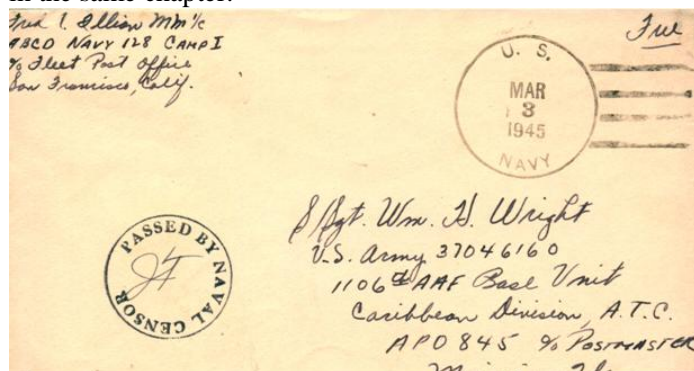 in the same chapter.
Fred L. Ellison MM 1/c
ABCD NAVY 128 CAMP I
c/o Fleet Post Office
San Francisco, Calif.
Free
U. S.
MAR
3
1945
NAVY
PASSED BY NAVAL CENSOR
S/Sgt. Wm. H. Wright
U.S. Army 37046160
1106th AAF Base Unit
Caribbean Division, A.T.C.
APO 845 c/o POSTMASTER